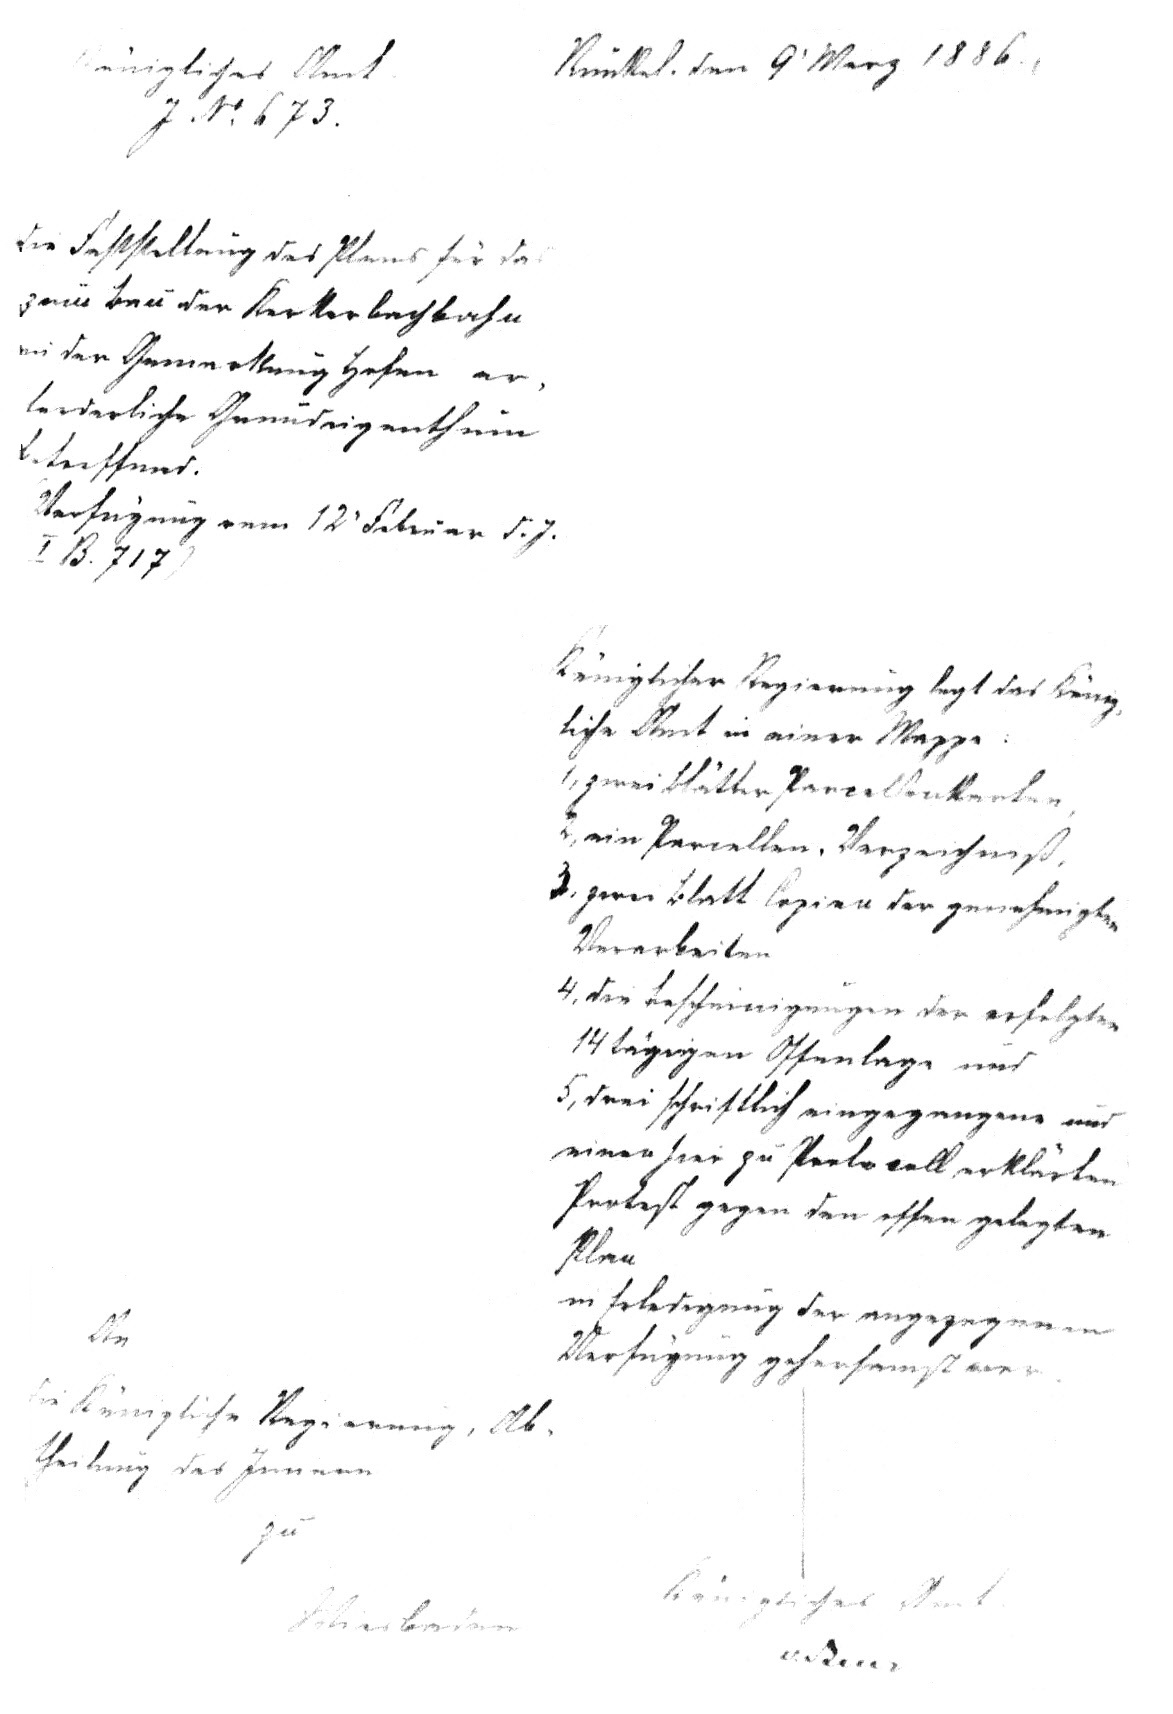 Königliches Amt
J. No. 673.
Runkel. den 9' Merz 1886.
die Feststellung des Plans für das
zum Bau der Kerkerbachbahn
in der Gemarkung Hofen er-
forderliche Grundeigenthum
betreffend.
Verfügung vom 12' Februar d. J.
I B. 717)
Königlicher Regierung legt das König-
liche Amt in einer Mappe:
1, zwei Blätter Parcellenkarten,
2, ein Parcellen-Verzeichniß,
3, zwei Blatt Copien der genehmigten
Vorarbeiten
4, die Bescheinigungen der erfolgten
14 tägigen Offenlage und
5, drei schriftlich eingegangene und
einen hier zu Protocoll erklärten
Protest gegen den offen gelegten
Plan
in Erledigung der angezogenen
Verfügung gehorsamst vor.
An
die Königliche Regierung, Ab-
theilung des Innern
zu
Wiesbaden
Königliches Amt.